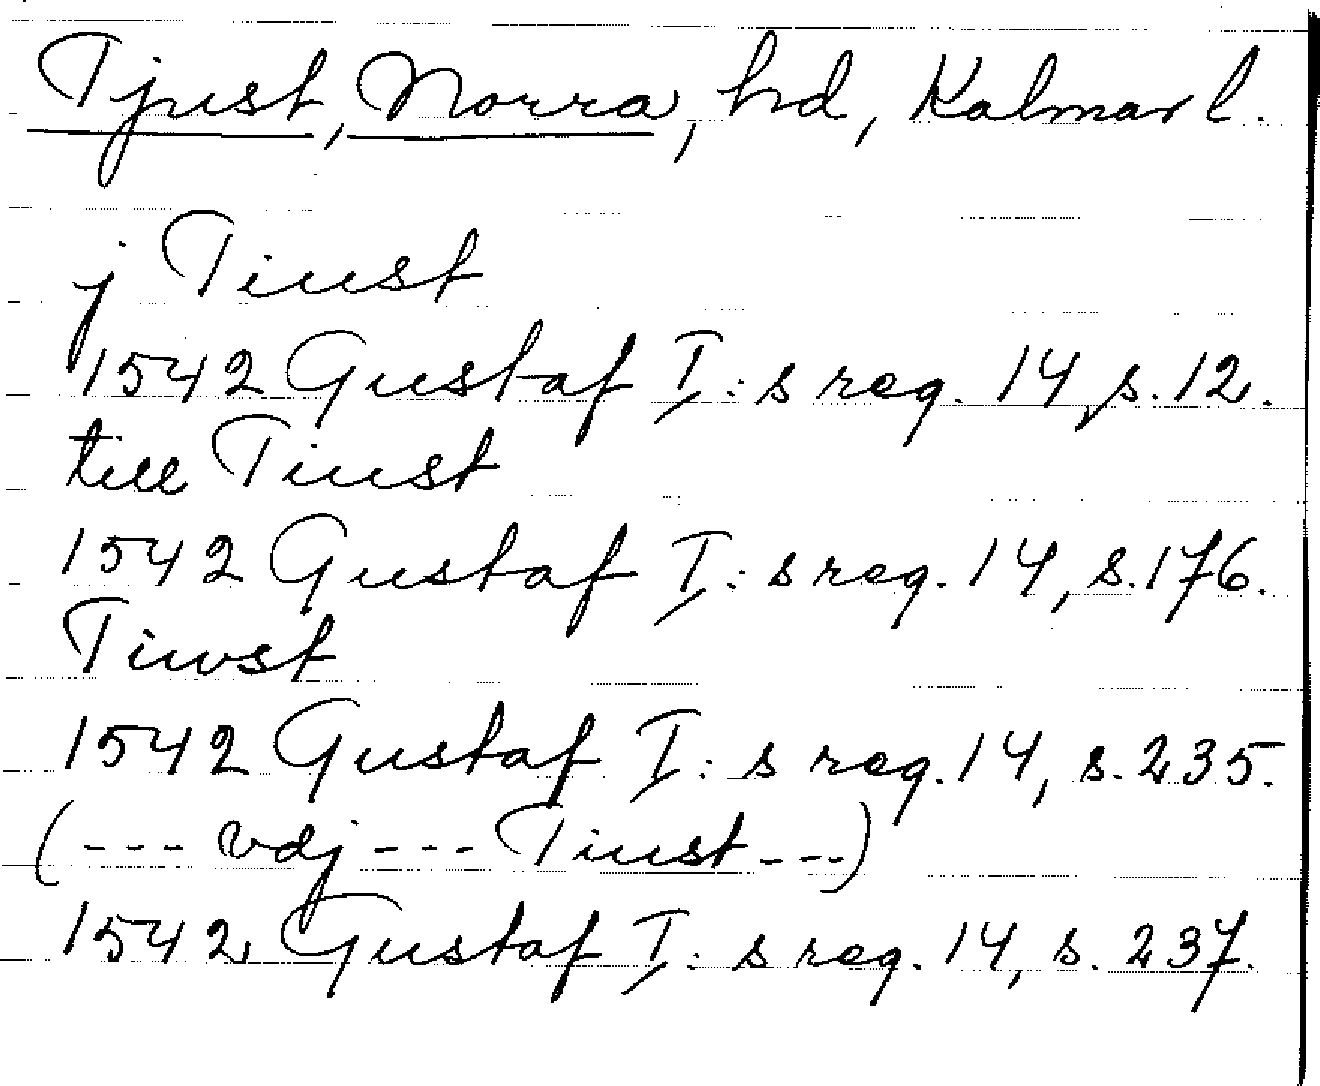 Tjust, Norra, hd, Kalmar l.
j Tiust
1542 Gustaf I:s reg. 14, s. 12.
till Tiust
1542 Gustaf I:s reg. 14, s. 176.
Tiwst
1542 Gustaf I:s reg. 14, s. 235.
(--- vdj --- Tiust ---)
1542 Gustaf I:s reg. 14, s. 237.